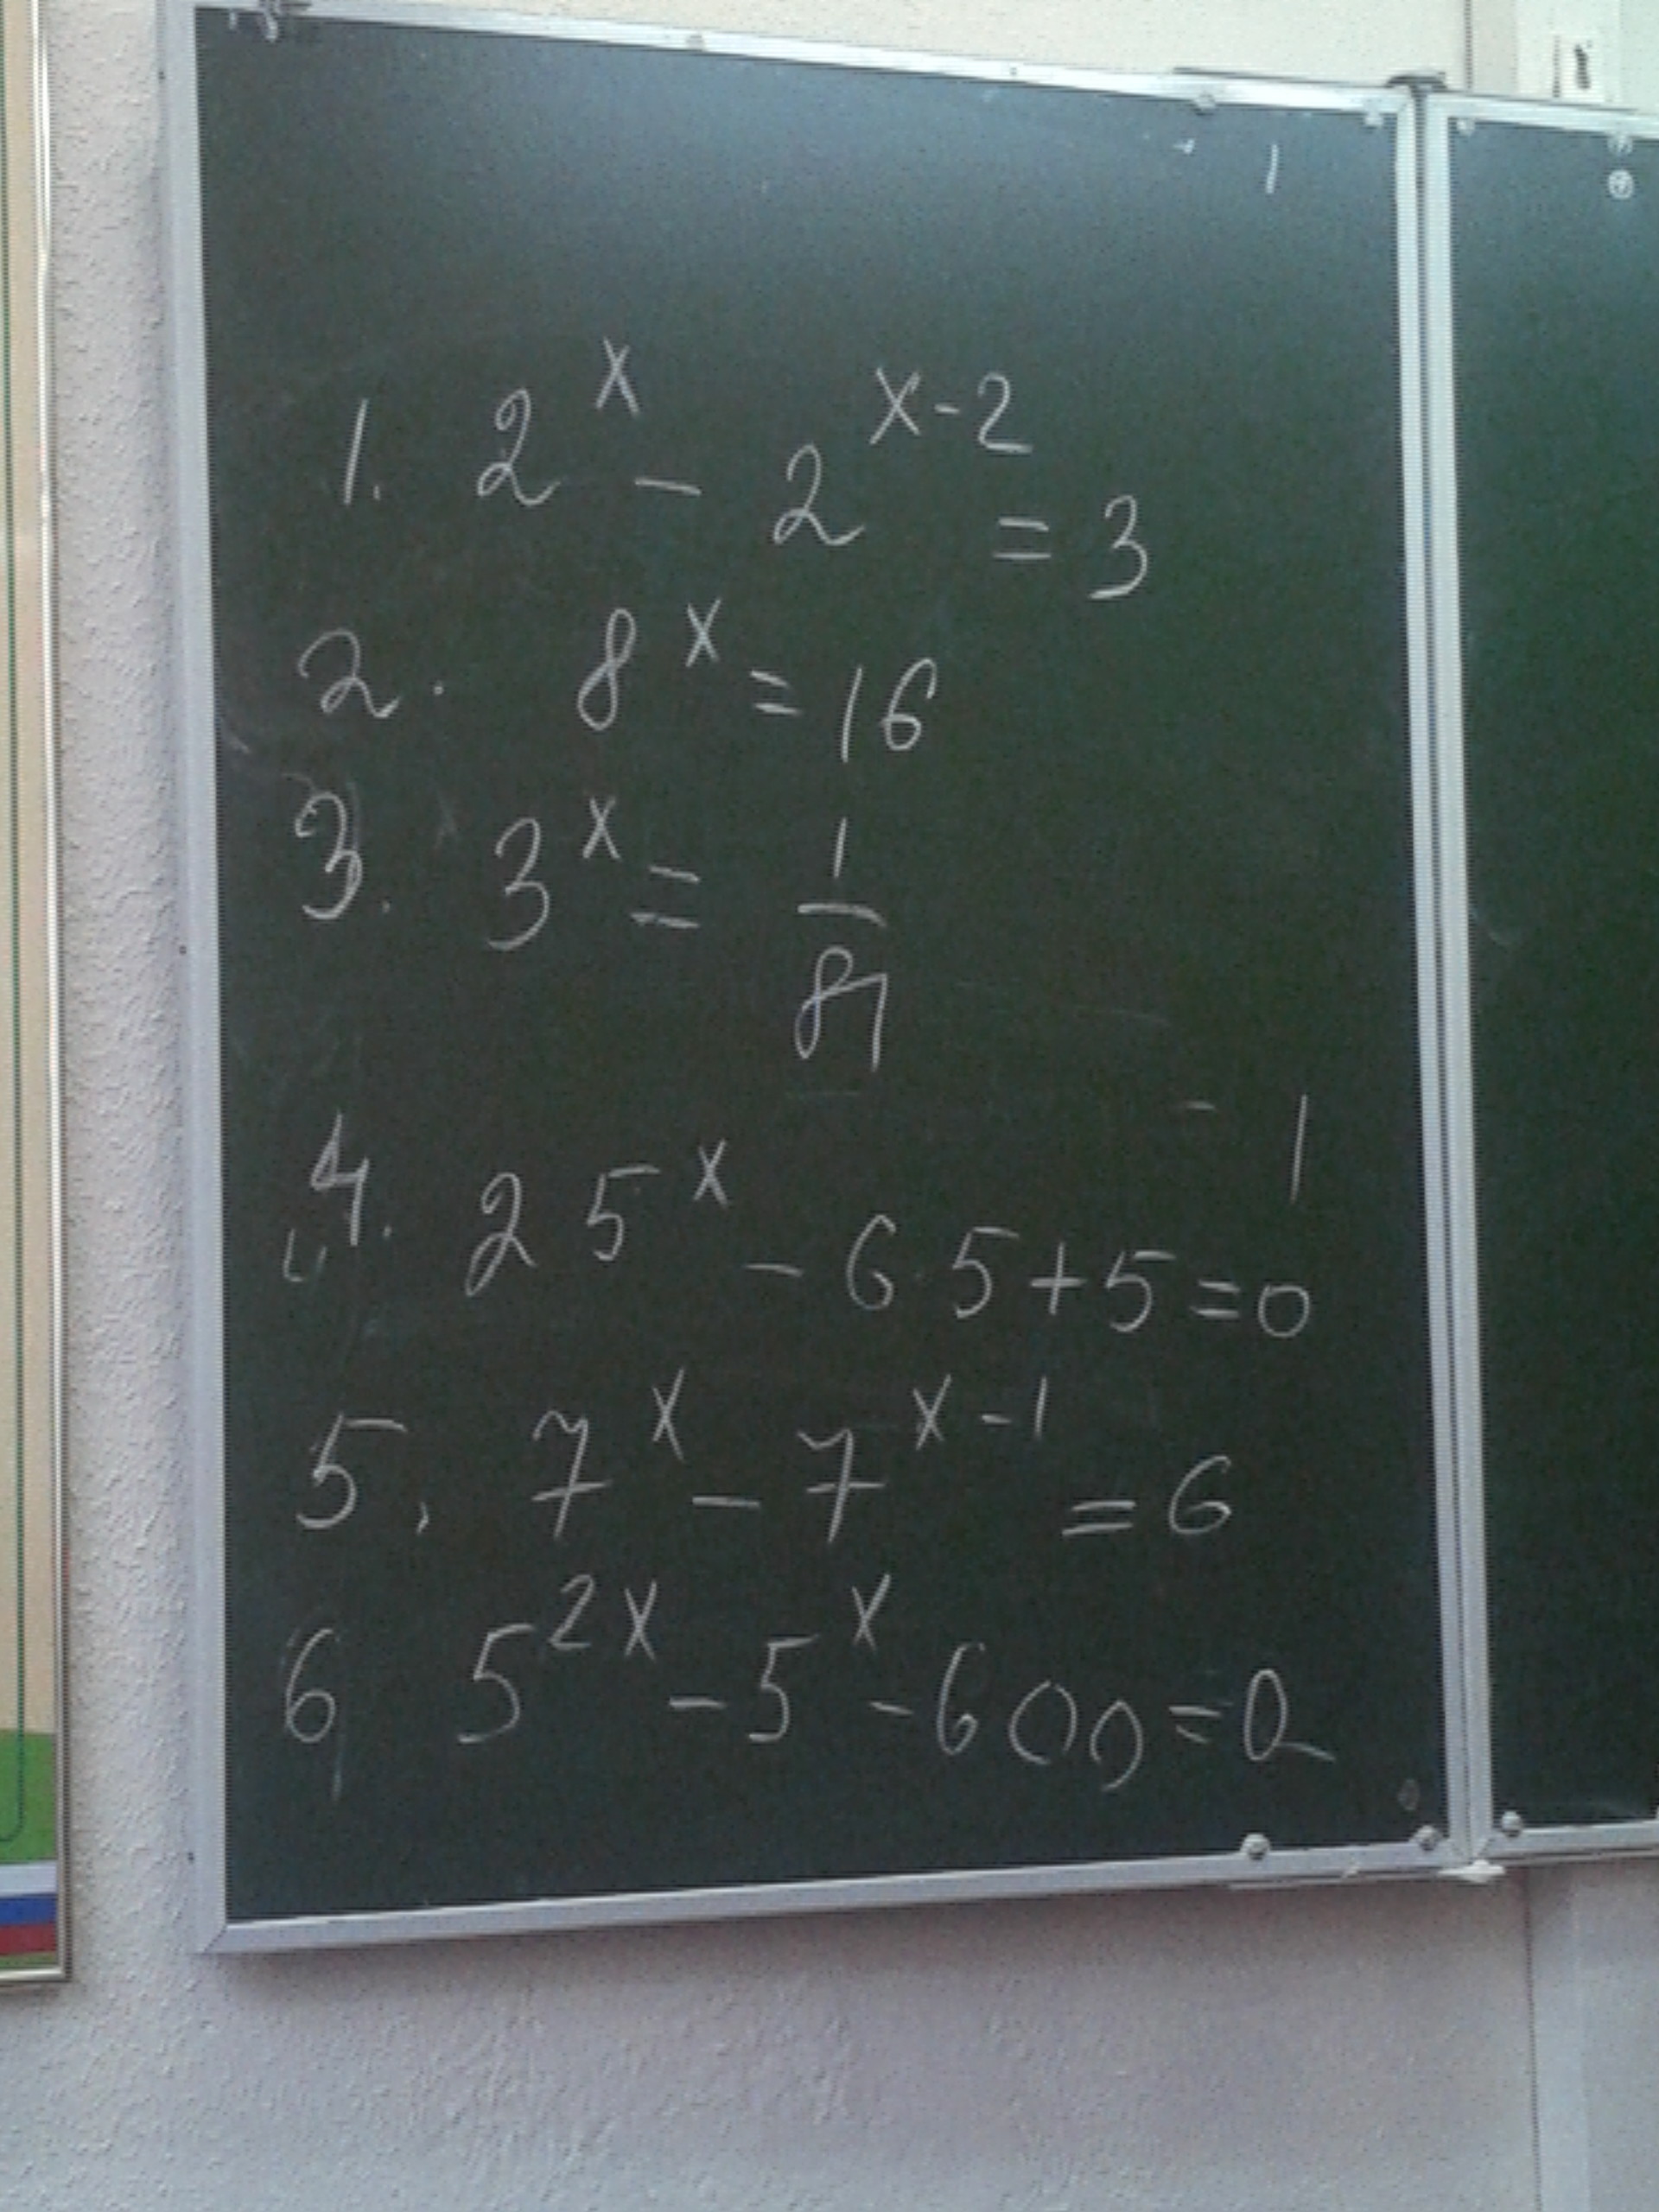 1. 2^x - 2^(x-2) = 3
2. 8^x = 16
3. 3^x = 1/81
4. 25^x - 6·5 + 5 = 0
5. 7^x - 7^(x-1) = 6
6 5^(2x) - 5^x - 600 = 0